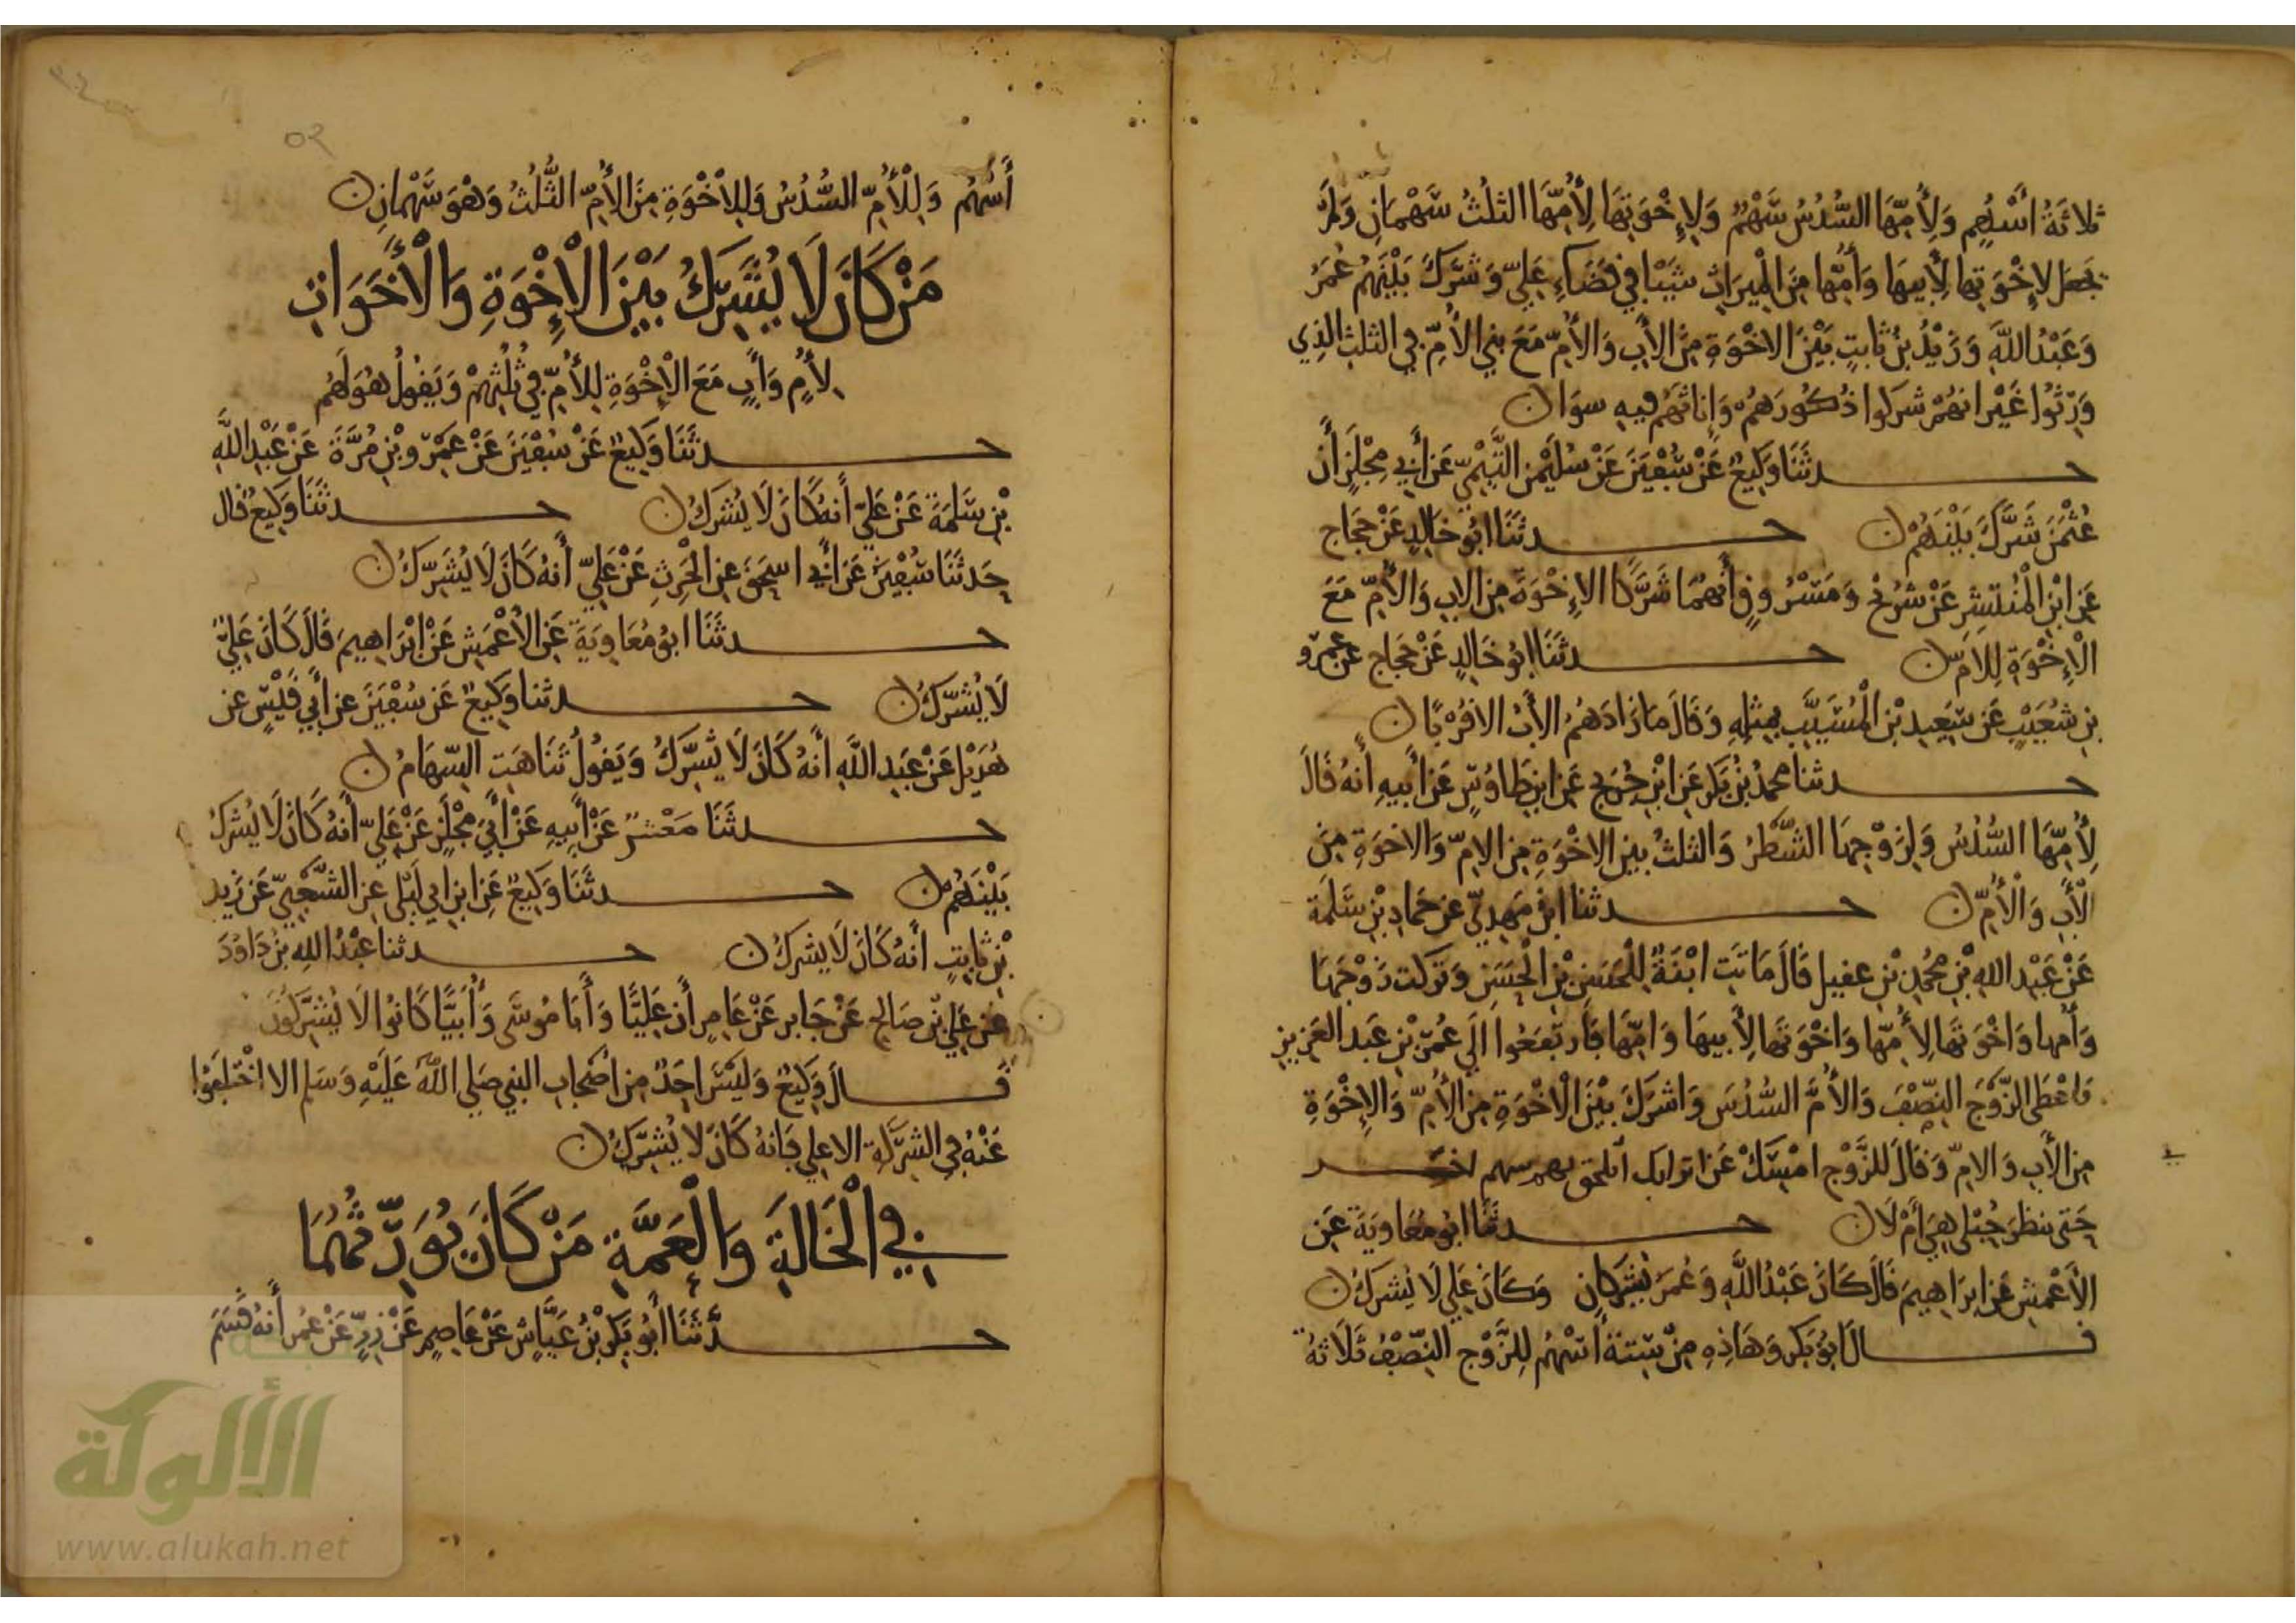 ثلاثَةُ أَسْهُمٍ وَلِأُمِّهَا السُّدُسُ سَهْمٌ وَلِإِخْوَتِهَا لِأُمِّهَا الثلُثُ سَهْمَانِ وَلَمْ
يجعَل لإِخْوَتِها لِأَبيهَا وَأُمِّها مِنَ الْمِيرَاثِ شَيْئًا فِي قَضَاءِ عَلِيٍّ وَشَرَّكَ بَيْنَهُمْ عُمَرُ
وَعَبْدُ اللَّهِ وَزَيْدُ بْنُ ثَابِتٍ بَيْنَ الاخْوَةِ مِنَ الأَبِ وَالأُمِّ مَعَ بني الأُمِّ فِي الثلث الذِي
وَرِثُوا غَيْرَ انهُمْ شركوا ذُكُورَهُمْ وَإِناثهُمْ فيهِ سوَا ن
حـدثَنَا وَكِيعٌ عَنْ سُفْيَنَ عَنْ سُلَيْمَن التَّيْمِيِّ عَنْ أَبِي مِجْلَزٍ أَنَّ
عُثْمَنَ شَرَّكَ بَيْنَهُمْ ن حـدثَنَا ابُو خَالِدٍ عَنْ حَجَاج
عَنِ ابْنِ الْمُنْتَشِرِ عَنْ شُرَيْحٍ وَمَسْرُوقٍ أَنهُمَا شَرَّكَا الإِخْوَةَ مِن الاب وَالأُمِّ مَعَ
الْإِخْوَةِ لِلأمِّ ن حـدثَنَا ابُو خَالِدٍ عَنْ حَجَاج عن عَمْرو
بنِ شُعَيْبٍ عَن سَعِيدِ بْنِ الْمُسَيَّبِ بِمِثلِهِ وَقَالَ مَا زَادَهُمُ الأَبُ الا قُرْبًا ن
حـدثنا محمدُ بْنُ بَكر عَنِ ابْنِ جُرَيج عَنِ ابنِ طَاوُسٍ عَنْ أَبِيهِ أَنهُ قَالَ
لِأُمِّهَا السُّدُسُ وَلِزَوْجِهَا الشَّطْرُ وَالثلثُ بين الإخْوَةِ مِنَ الامِّ وَالاخوَةِ مِنَ
الْأَبِ وَالْأُمِّ ن حـدثنا ابنُ مَهدِيٍّ عن حَمادِ بْنِ سَلَمَةَ
عَنْ عَبْدِ اللهِ بْنِ مُحَمدِ بْنِ عقيل قَالَ مَاتَتِ ابْنَةٌ لِلْحَسَنِ بْنِ الْحَسَنِ وَتَرَكت زَوْجَهَا
وَأمها وَاخْوَتَهَا لِأُمِّهَا وَاخْوَتَها لِأَبيهَا وَامِّهَا فَارتَفَعُوا الَى عُمَرَ بْنِ عَبدِ العَزِيزِ
فَاعْطَى الزَّوْجَ النِّصْفَ وَالأُمَّ السُّدُسَ وَاشرَكَ بَيْنَ الْاخْوَةِ مِنَ الأُمِّ وَالإِخْوَةِ
مِنَ الأَبِ وَالامِّ وَقَالَ للزَّوْجِ امْسِكْ عَن
حَتى ينظرَ حُبْلى هِيَ أَمْ لَا ن حـدثَنَا ابُو مُعَاويَةَ عَنِ
الأَعْمَشِ عَنِ ابرَاهِيمَ قَالَ كَانَ عَبْدُ اللَّهِ وَعُمَرَ يُشَرِّكَانِ وَكَانَ عَلِي لَا يُشَرِّكُ ن
قـالَ ابُو بَكر وَهَاذِهِ مِنْ سِتةِ أَسْهُم لِلزَّوْج النِّصْفُ ثَلَاثةُ
٥٢
أَسْهُمٍ وَلِلْأُمِّ السُّدُسُ وَلِلِاخْوَةِ مِنَ الأُمِّ الثُّلُثُ وَهْوَ سَهْمَانِ ن
مَنْ كَانَ لَا يُشَرِّكُ بَيْنَ الْإِخْوَةِ وَالْأَخَوَاتِ
لِأُمٍ وَأَبٍ مَعَ الْإِخْوَةِ لِلأُمِّ فِي ثُلُثِهِمْ وَيَقُولُ هُوَ لَهُمْ
حـدثَنَا وَكِيعٌ عَنْ سُفْيَنَ عَنْ عَمْرِو بْنِ مُرَّةَ عَنْ عَبْدِ اللَّهِ
بْنِ سَلَمَةَ عَنْ عَلِيٍّ أَنهُ كَانَ لَا يُشَرِّكُ ن حـدثَنَا وَكِيعٌ قال
حَدثَنَا سُفْيَنُ عَنْ أَبِي اسحَقَ عنِ الْحَرِثِ عَنْ عَلِيٍّ أَنهُ كَانَ لَا يُشَرِّكُ ن
حـدثَنَا ابُو مُعَاوِيَةَ عَنِ الأَعْمَشِ عَنْ ابْرَاهِيمَ قَالَ كَانَ عَلِيٌّ
لَا يُشَرِّكُ ن حـدثنا وَكِيعٌ عَن سُفْيَنَ عن أَبِي قَيْسٍ عن
هُزَيْلٍ عَنْ عَبْدِ اللَّهِ أَنَّهُ كَانَ لَا يُشَرِّكُ وَيَقُولُ تَنَاهَتِ السِّهَامُ ن
حـدثَنَا مَعْتمرٌ عَنْ أَبِيهِ عَنْ أَبِي مِجْلَزٍ عَنْ عَلِيٍّ أَنهُ كَانَ لَا يُشَرِّكُ
بَيْنَهُمْ ن حـدثَنَا وَكِيعٌ عَنِ ابنِ ابي لَيْلى عَنِ الشَّعْبِيِّ عَن زَيد
بْنِ ثَابِتٍ أَنهُ كَانَ لَا يشركُ ن حـدثنا عَبْدُ اللهِ بْنُ دَاوُدَ
عَنْ عَلِي بْنِ صَالِحٍ عَنْ جَابر عَنْ عَامِرٍ أَنَّ عَلِيًّا وَأَبَا مُوسَى وَأُبَيًّا كَانُوا لَا يُشَرِّكُونَ
قـالَ وَكِيعٌ وَلَيْسَ احَدٌ مِن اصْحَابِ النبي صَلى اللهُ عَلَيْهِ وَسَلم الا اخْتَلَفوا
عَنْهُ فِي الشَّرِكَةِ الا عَلِي فَانهُ كَانَ لَا يُشَرِّكُ ن
فِي الْخَالَةِ وَالْعَمَّةِ مَنْ كَانَ يُوَرِّثُهُمَا
حـدثَنَا أَبُو بَكْر بْنُ عَيَّاشٍ عَنْ عَاصِمٍ عَنْ زِرٍّ عَنْ عُمَرَ أَنهُ قَسَمَ
الألوكة
www.alukah.net